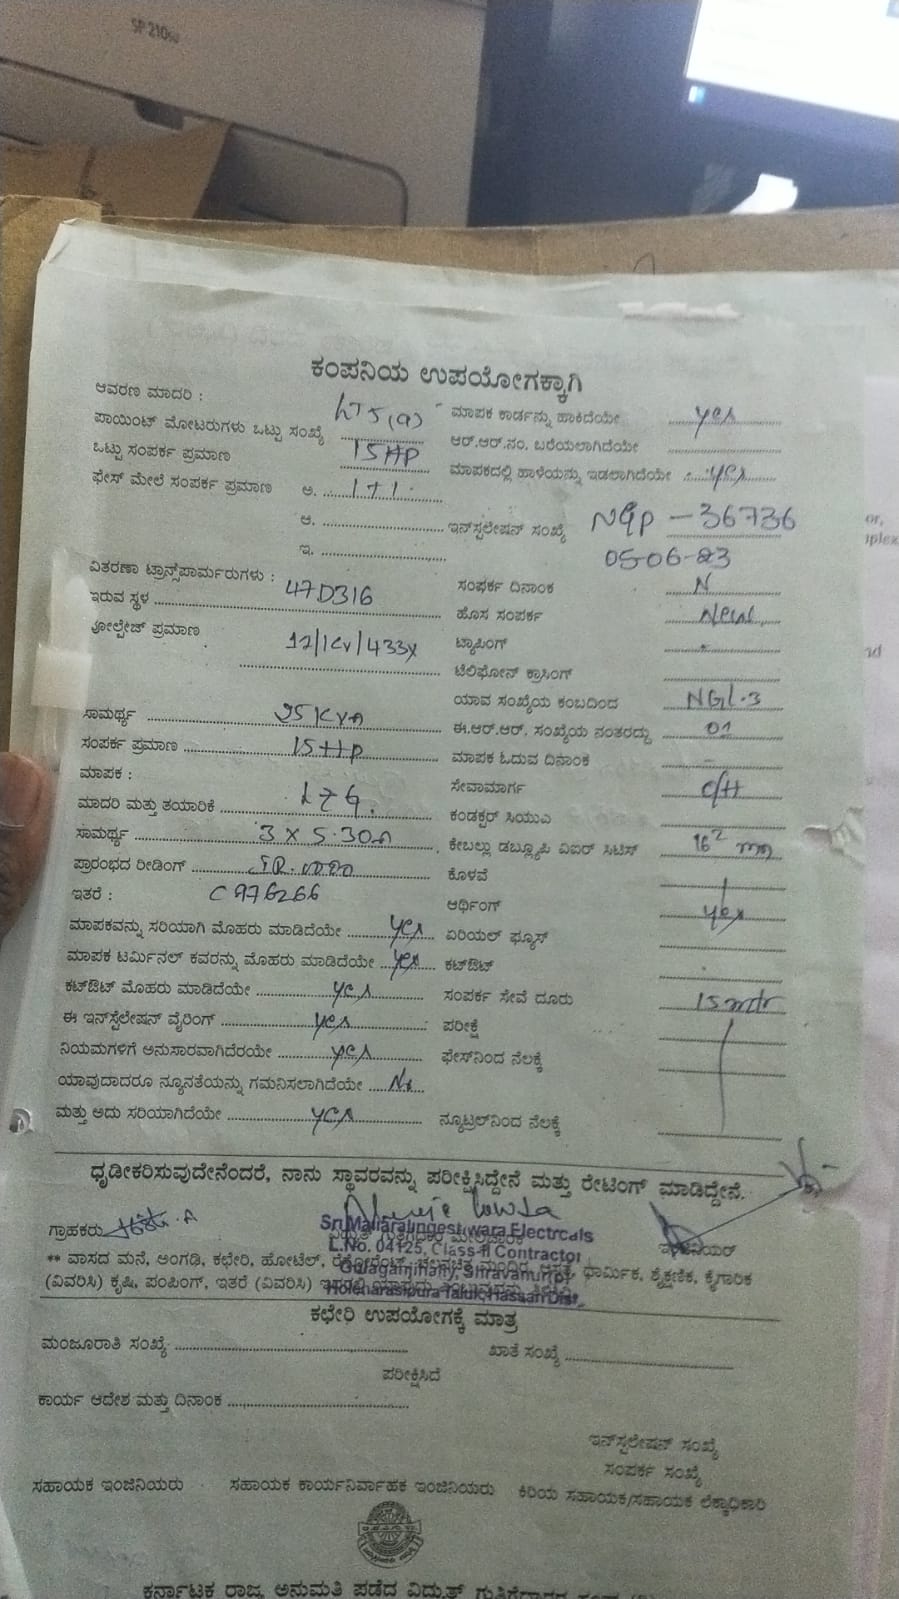 SP 210
ಕಂಪನಿಯ ಉಪಯೋಗಕ್ಕಾಗಿ
ಆವರಣ ಮಾದರಿ : LT5(a) ಮಾಪಕ ಕಾರ್ಡನ್ನು ಹಾಕಿದೆಯೇ yes
ಪಾಯಿಂಟ್ ಮೋಟರುಗಳು ಒಟ್ಟು ಸಂಖ್ಯೆ ಆರ್.ಆರ್.ನಂ. ಬರೆಯಲಾಗಿದೆಯೇ
ಒಟ್ಟು ಸಂಪರ್ಕ ಪ್ರಮಾಣ 15HP ಮಾಪಕದಲ್ಲಿ ಹಾಳೆಯನ್ನು ಇಡಲಾಗಿದೆಯೇ yes
ಫೇಸ್ ಮೇಲೆ ಸಂಪರ್ಕ ಪ್ರಮಾಣ ಅ. 1+1
ಆ. ಇನ್‌ಸ್ಟಲೇಷನ್ ಸಂಖ್ಯೆ NGP - 36736
ಇ. 05-06-23
ವಿತರಣಾ ಟ್ರಾನ್ಸ್‌ಪಾರ್ಮರುಗಳು : ಸಂಪರ್ಕ ದಿನಾಂಕ N
ಇರುವ ಸ್ಥಳ 47D316 ಹೊಸ ಸಂಪರ್ಕ New
ವೋಲ್ಟೇಜ್ ಪ್ರಮಾಣ ಟ್ಯಾಪಿಂಗ್
ಟೆಲಿಫೋನ್ ಕ್ರಾಸಿಂಗ್
ಯಾವ ಸಂಖ್ಯೆಯ ಕಂಬದಿಂದ NGL.3
ಸಾಮರ್ಥ್ಯ 25 KVA ಈ.ಆರ್.ಆರ್. ಸಂಖ್ಯೆಯ ನಂತರದ್ದು 01
ಸಂಪರ್ಕ ಪ್ರಮಾಣ 15HP ಮಾಪಕ ಓದುವ ದಿನಾಂಕ –
ಮಾಪಕ : ಸೇವಾಮಾರ್ಗ O/H
ಮಾದರಿ ಮತ್ತು ತಯಾರಿಕೆ L+G. ಕಂಡಕ್ಟರ್ ಸಿಯುಎ
ಸಾಮರ್ಥ್ಯ 3 X 5-30A ಕೇಬಲ್ಲು ಡಬ್ಲ್ಯೂಪಿ ವಿಐಆರ್ ಸಿಟಿಸ್ 16² mm
ಪ್ರಾರಂಭದ ರೀಡಿಂಗ್ ಕೊಳವೆ
ಇತರೆ : C976266 ಆರ್ಥಿಂಗ್ yes
ಮಾಪಕವನ್ನು ಸರಿಯಾಗಿ ಮೊಹರು ಮಾಡಿದೆಯೇ yes ಏರಿಯಲ್ ಫ್ಯೂಸ್
ಮಾಪಕ ಟರ್ಮಿನಲ್ ಕವರನ್ನು ಮೊಹರು ಮಾಡಿದೆಯೇ yes ಕಟ್‌ಔಟ್
ಕಟ್‌ಔಟ್ ಮೊಹರು ಮಾಡಿದೆಯೇ yes ಸಂಪರ್ಕ ಸೇವೆ ದೂರು 15 mtr
ಈ ಇನ್‌ಸ್ಟೆಲೇಷನ್ ವೈರಿಂಗ್ yes ಪರೀಕ್ಷೆ
ನಿಯಮಗಳಿಗೆ ಅನುಸಾರವಾಗಿದೆರಯೇ yes ಫೇಸ್‌ನಿಂದ ನೆಲಕ್ಕೆ
ಯಾವುದಾದರೂ ನ್ಯೂನತೆಯನ್ನು ಗಮನಿಸಲಾಗಿದೆಯೇ No
ಮತ್ತು ಅದು ಸರಿಯಾಗಿದೆಯೇ yes ನ್ಯೂಟ್ರಲ್‌ನಿಂದ ನೆಲಕ್ಕೆ
ಧೃಡೀಕರಿಸುವುದೇನೆಂದರೆ, ನಾನು ಸ್ಥಾವರವನ್ನು ಪರೀಕ್ಷಿಸಿದ್ದೇನೆ ಮತ್ತು ರೇಟಿಂಗ್ ಮಾಡಿದ್ದೇನೆ.
ಗ್ರಾಹಕರು ಇಂಜಿನಿಯರ್
Sri Mallaralingeshwara Electrcals
L.No. 04125, Class-II Contractor
Gulaganjihally, Shravanur(p)
Holenarasipura Taluk, Hassan Dist.
** ವಾಸದ ಮನೆ, ಅಂಗಡಿ, ಕಛೇರಿ, ಹೋಟೆಲ್, ಧಾರ್ಮಿಕ, ಶೈಕ್ಷಣಿಕ, ಕೈಗಾರಿಕ
(ವಿವರಿಸಿ) ಕೃಷಿ, ಪಂಪಿಂಗ್, ಇತರೆ (ವಿವರಿಸಿ)
ಕಛೇರಿ ಉಪಯೋಗಕ್ಕೆ ಮಾತ್ರ
ಮಂಜೂರಾತಿ ಸಂಖ್ಯೆ ಖಾತೆ ಸಂಖ್ಯೆ
ಪರೀಕ್ಷಿಸಿದೆ
ಕಾರ್ಯ ಆದೇಶ ಮತ್ತು ದಿನಾಂಕ
ಇನ್‌ಸ್ಟಲೇಷನ್ ಸಂಖ್ಯೆ
ಸಂಪರ್ಕ ಸಂಖ್ಯೆ
ಸಹಾಯಕ ಇಂಜಿನಿಯರು ಸಹಾಯಕ ಕಾರ್ಯನಿರ್ವಾಹಕ ಇಂಜಿನಿಯರು ಕಿರಿಯ ಸಹಾಯಕ/ಸಹಾಯಕ ಲೆಕ್ಕಾಧಿಕಾರಿ
ಕರ್ನಾಟಕ ರಾಜ್ಯ ಅನುಮತಿ ಪಡೆದ ವಿದ್ಯುತ್ ಗುತ್ತಿಗೆದಾರರ ಸಂಘ